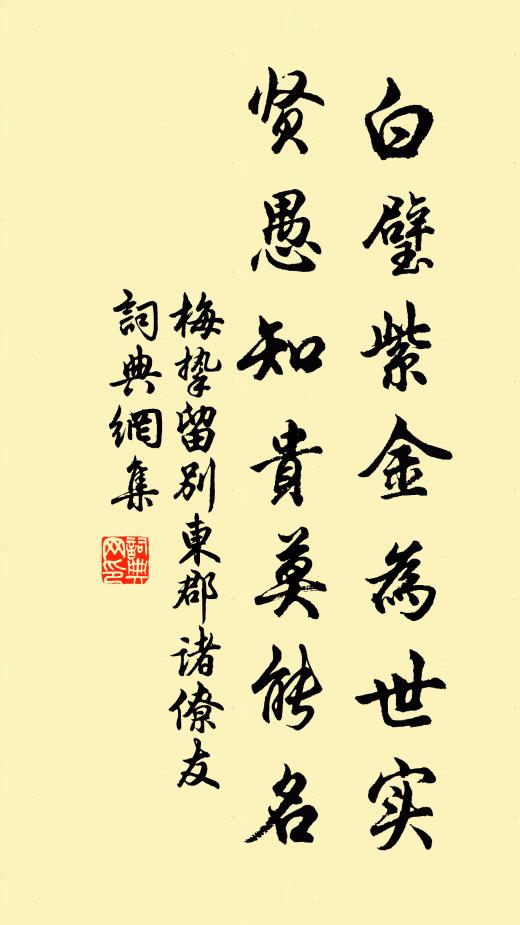 白璧紫金為世实
贤愚知貴莫能名
梅挚留别東郡诸僚友
詞典網集
詞典網印